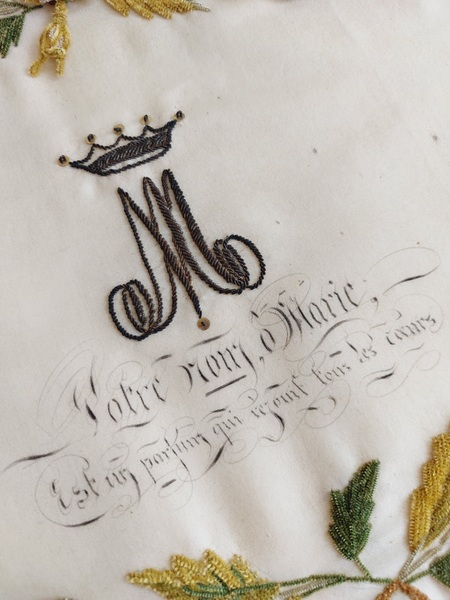 M
Votre nom, ô Marie,
Est un parfum qui réjouit tous les cœurs